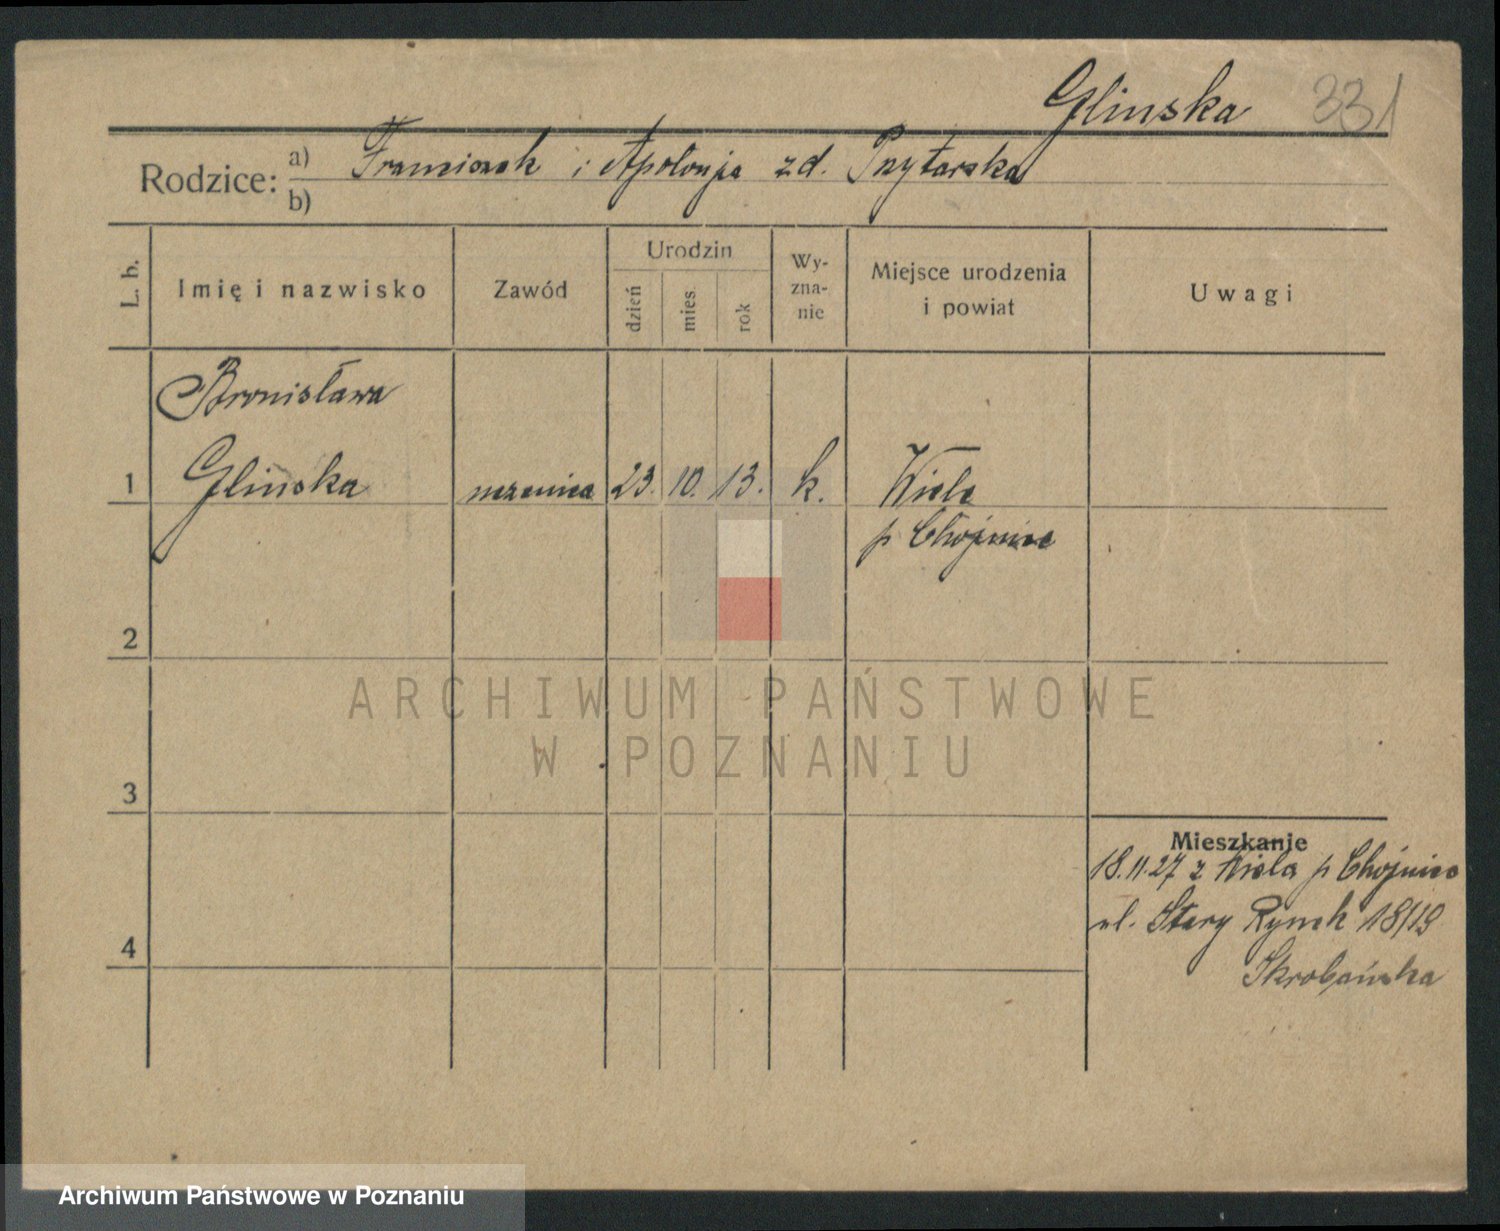 Glinska 331
Rodzice: a) Franciszek i Apolonja zd. Przytarska
b)
L. b.
Imię i nazwisko
Zawód
Urodzin
dzień
mies.
rok
Wy-
zna-
nie
Miejsce urodzenia
i powiat
Uwagi
Bronisława
1 Glinska uczenica 23. 10. 13. k. Wiele
p Chojnice
2
3
4
Mieszkanie
18.11.27 z Wiela p Chojnice
ul. Stary Rynek 18/19
ARCHIWUM PAŃSTWOWE
W POZNANIU
Archiwum Państwowe w Poznaniu